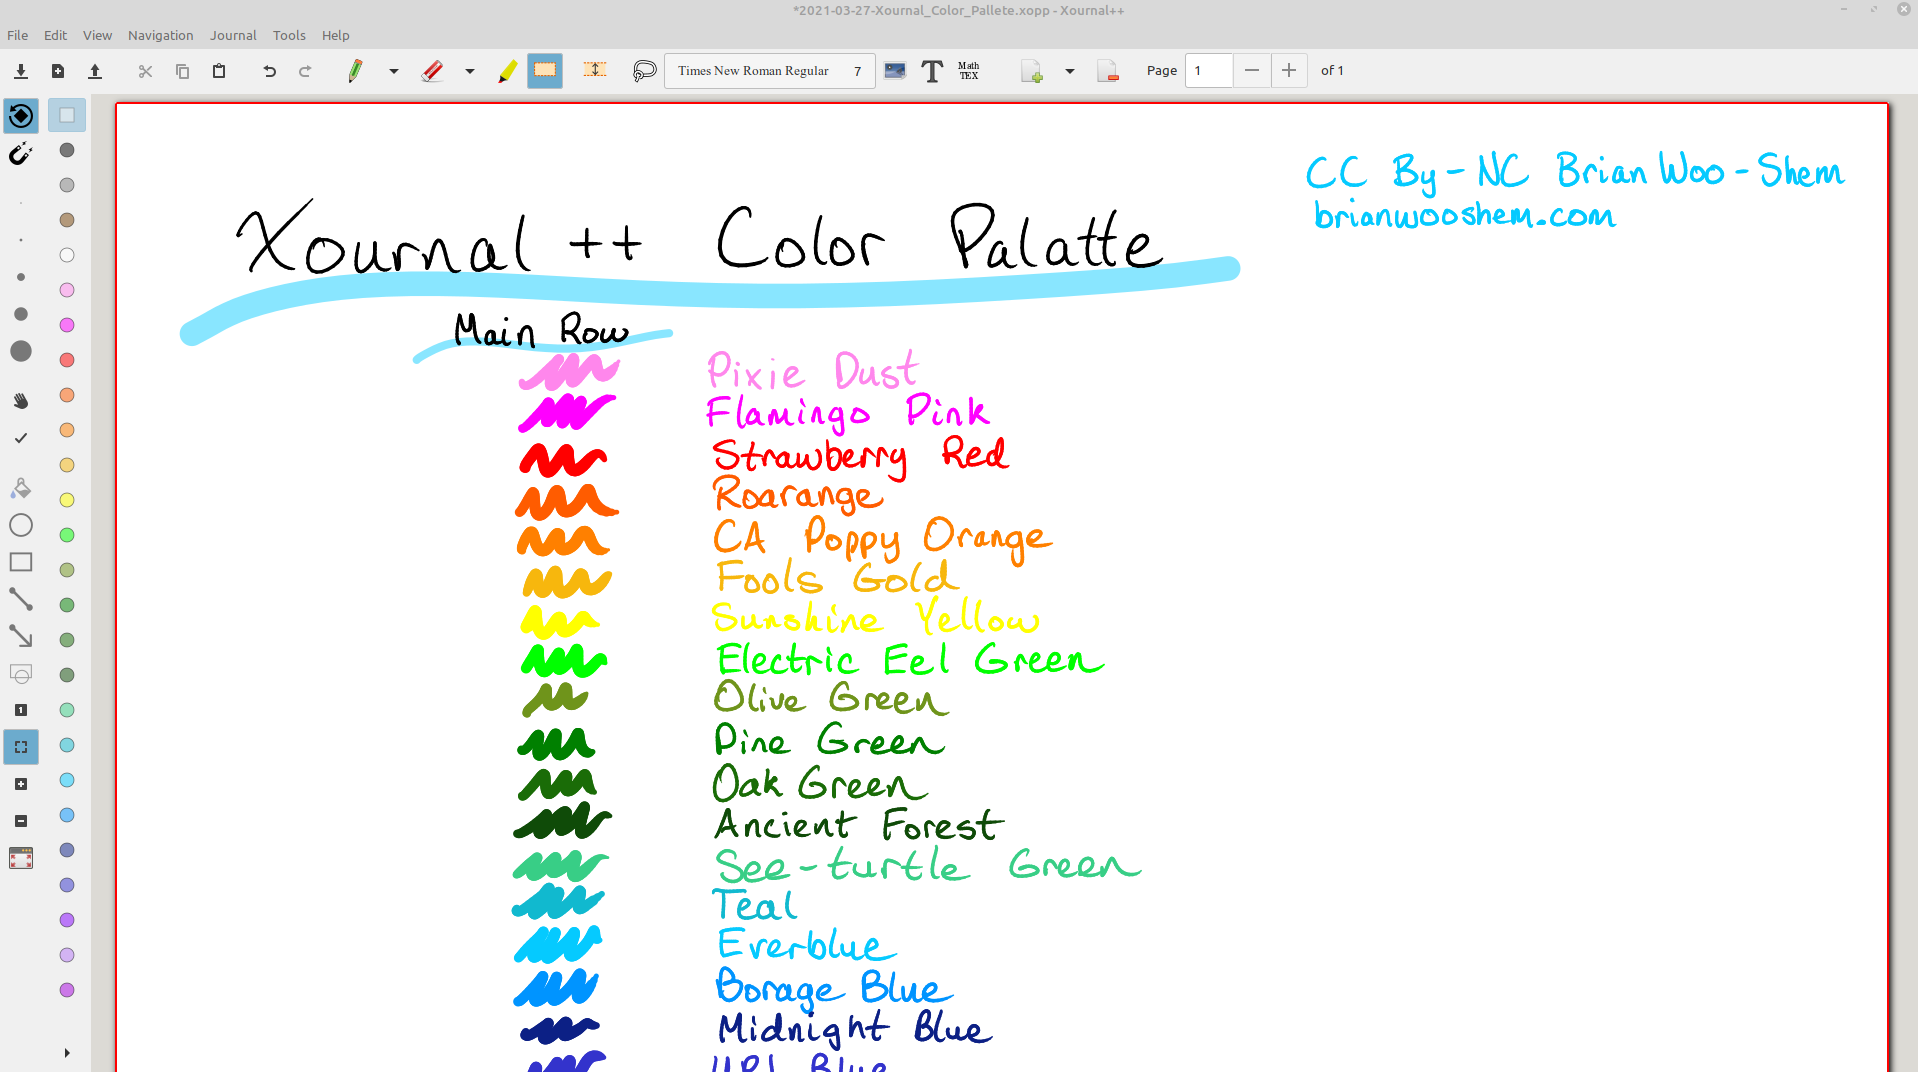 *2021-03-27-Xournal_Color_Pallete.xopp - Xournal++
File Edit View Navigation Journal Tools Help
Times New Roman Regular 7 T Math TEX Page 1 of 1
CC By-NC Brian Woo-Shem
brianwooshem.com
Xournal ++ Color Palatte
Main Row
Pixie Dust
Flamingo Pink
Strawberry Red
Roarange
CA Poppy Orange
Fools Gold
Sunshine Yellow
Electric Eel Green
Olive Green
Pine Green
Oak Green
Ancient Forest
See-turtle Green
Teal
Everblue
Borage Blue
Midnight Blue
URL Blue